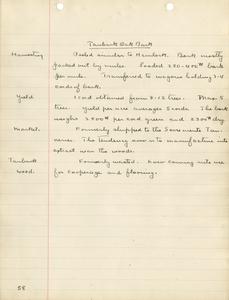 Tanbark Oak Bark
Harvesting Peeled similar to Hemlock. Bark mostly
packed out by mules. Loaded 250-400# bark
per mule. Transferred to wagons holding 3-4
cords of bark.
Yield 1 cord obtained from 8-12 trees. Max 5
trees. Yield per acre averages 5 cords. The bark
weighs 2800# per cord green and 2300 dry.
Market. Formerly shipped to the Sacramento Tan-
neries. The tendency now is to manufacture into
extract near the woods.
Tanbark Formerly wasted. Now coming into use
wood. for cooperage and flooring.
58